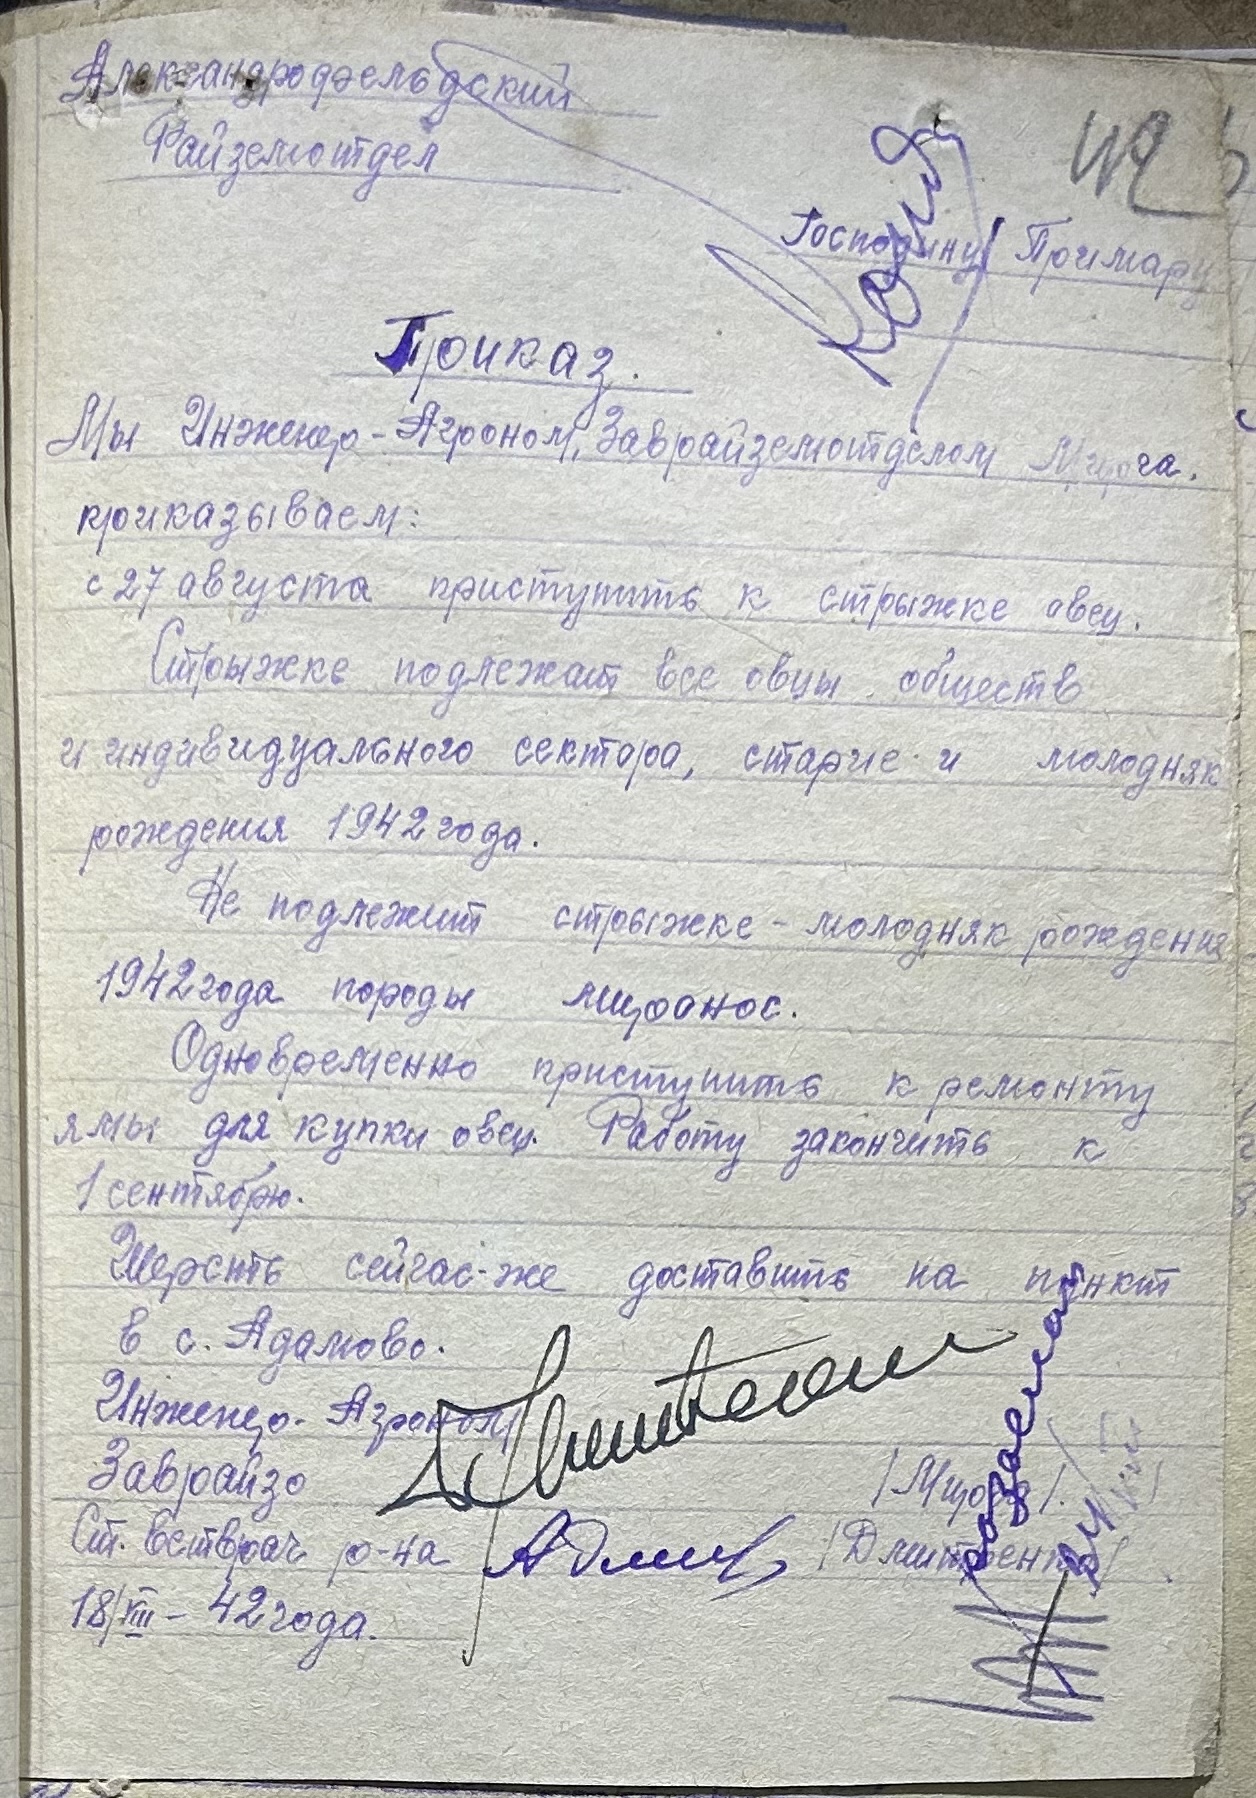 Александрофельдский
Райземотдел
Копия
Господину Примару
Приказ.
Мы Инженер-Агроном, Заврайземотделом
приказываем:
с 27 августа приступить к стрыжке овец.
Стрыжке подлежат все овцы обществ
и индивидуального сектора, старые и молодняк
рождения 1942 года.
Не подлежит стрыжке - молодняк рождения
1942 года породы
Одновременно приступить к ремонту
ямы для купки овец. Работу закончить к
1 сентябрю.
Шерсть сейчас-же доставить на пункт
в с. Адамово.
Инженер-Агроном
Заврайзо
Ст. ветврач р-на
18/VIII - 42 года.